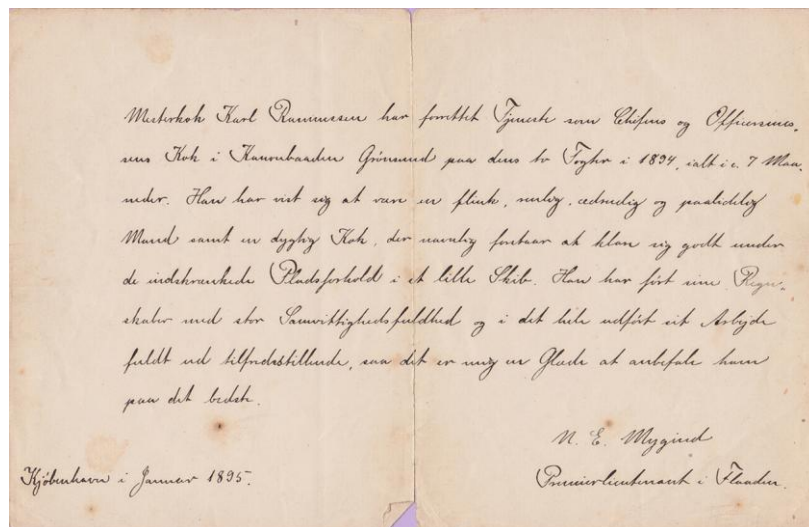 Mesterkok Karl Rasmussen har forrettet Tjeneste som Chefens og Officersmes-
sens Kok i Kanonbaaden Grönsund paa dens to Togter i 1894, ialt i c. 7 Maa-
neder. Han har vist sig at være en flink, rolig, ædruelig og paalidelig
Mand samt en dygtig Kok, der navnlig forstaar at klare sig godt under
de indskrænkede Pladsforhold i et lille Skib. Han har ført sine Regn-
skaber med stor Samvittighedsfuldhed og i det hele udført sit Arbejde
fuldt ud tilfredsstillende, saa det er mig en Glæde at anbefale ham
paa det bedste.
N. E. Mygind
Kjöbenhavn i Januar 1895.
Premierlieutenant i Flaaden.